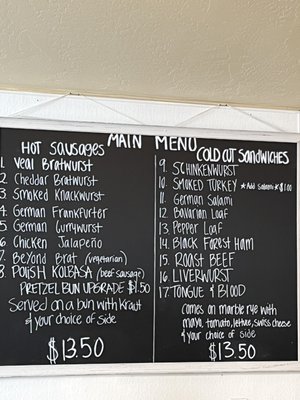 MAIN MENU
HOT SAUSAGES
1 Veal Bratwurst
2 Cheddar Bratwurst
3 Smoked Knackwurst
4 German Frankfurter
5 German Currywurst
6 Chicken Jalapeño
7 Beyond Brat (vegetarian)
8 POLISH KOLBASA (beef sausage)
PRETZEL BUN UPGRADE $1.50
Served on a bun with kraut
& your choice of side
$13.50
COLD CUT SANDWICHES
9. SCHINKENWURST
10. SMOKED TURKEY *Add Salami $1.00
11. German Salami
12. Bavarian Loaf
13. Pepper Loaf
14. Black Forest Ham
15. ROAST BEEF
16. LIVERWURST
17. TONGUE & BLOOD
comes on marble rye with
mayo, tomato, lettuce, swiss cheese
& your choice of side
$13.50